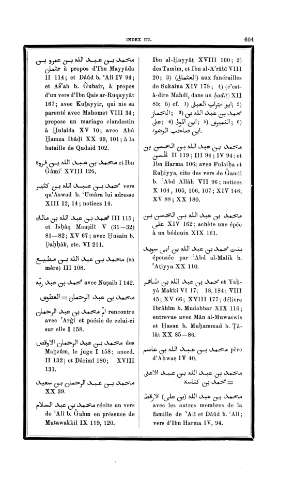 INDEX III.
604
محمد بن عبد الله بن عمرو بن
عثمان à propos d'Ibn Mayyâda
II 114; et Dâûd b. 'Alî IV 94;
et Aš'ab b. Ǵubair, à propos
d'un vers d'Ibn Qais ar-Ruqayyât
162; avec Kuṯayyir, qui nie sa
parenté avec Mahomet VIII 34;
propose un mariage clandestin
à
XV 10; avec Abû
Ḥamza Ibâdî XX 99, 101; à la
bataille de Qudaid 102.
محمد بن عبد الله بن فروة et Ibn
Ǵâmi' VIII 126.
محمد بن عبد الله بن كثير vers
qu'Aswad b. 'Umâra lui adresse
XIII 12, 14; notices 14.
محمد بن عبد الله بن مالك III 115;
et Isḥâq Mauṣilî V (31—32)
81—82; XV 67; avec Ḥusain b.
Ḍaḥḥâk, etc. VI 211.
محمد بن عبد الله بن مطيع (sa
mère) III 108.
محمد بن عبد ربه avec Nuṣaib I 142.
محمد بن عبد الرحمان = العطوى
محمد بن عبد الرحمان rencontre
avec 'Arǵî et poésie de celui-ci
sur elle I 158.
محمد بن عبد الرحمان الاوقص des
Maḫzûm, le juge I 158; anecd.
II 132; et Dârimî 180; XVIII
131.
محمد بن عبد الرحمان بن سعيد
XX 39.
محمد بن عبد السلام récite un vers
de 'Alî b. Ǵahm en présence de
Mutawakkil IX 119, 120.
Ibn al-Ḥayyât XVIII 100; 2)
des Tamîm, et Ibn al-A'râbî VIII
20; 3) aux funérailles
de Sukaina XIV 175; 4) (c'est-
à-dire Mahdî, dans un ḥadîṯ) XII
85; 5) cf.
محمد بن عبد الله بن الحسن بن
II 119; III 94; IV 94; et
Ibn Harma 106; avec Fulaiḥa et
Ruḥiyya, cite des vers de
b. 'Abd Allâh VII 96; notices
X 104, 105, 106, 107; XIV 146,
XV 88; XX 180.
محمد بن عبد الله بن الحسين بن
على XIV 162; achète une épée
à un bédouin XIX 161.
بنت محمد بن عبد الله بن ابى سويد
épousée par 'Abd al-Malik b.
'Aṭiyya XX 110.
محمد بن عبد الله بن طاهر et Yaḥ-
yâ Makkî VI 17, 18, 184; VIII
45; XV 66; XVIII 177; délivre
Ibrâhîm b. Mudabbar XIX 116;
entrevue avec Mân al-Muwaswis
et Ḥasan b. Muḥammad b. Ṭâ-
lût XX 85—86.
محمد بن عبد الله بن عاصم père
d'Aḥwaṣ IV 40.
محمد بن عبد الله بن عبد الاعلى
= محمد بن كناسة
محمد بن عبد الله (بن على) الارقط
avec les autres membres de la
famille de 'Alî et Dâûd b. 'Alî;
vers d'Ibn Harma IV, 94.